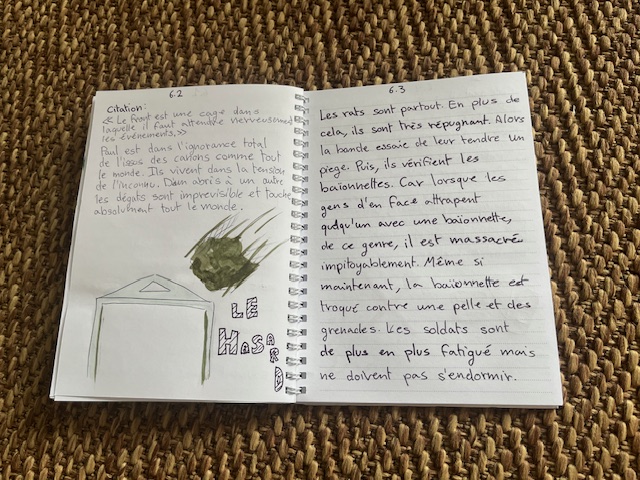 6.2
Citation:
« Le front est une cage dans
laquelle il faut attendre nerveusement
les événements.»
Paul est dans l'ignorance total
de l'issos des canons comme tout
le monde. Ils vivent dans la tension
de l'inconnu. D'un abris à un autre
les dégats sont imprevisible et touche
absolument tout le monde.
LE
HASARD
6.3
Les rats sont partout. En plus de
cela, ils sont très répugnant. Alors
la bande essaie de leur tendre un
piege. Puis, ils vérifient les
baïonnettes. Car lorsque les
gens d'en face attrapent
quelqu'un avec une baïonnette,
de ce genre, il est massacré
impitoyablement. Même si
maintenant, la baïonnette est
troqué contre une pelle et des
grenades. Les soldats sont
de plus en plus fatigué mais
ne doivent pas s'endormir.